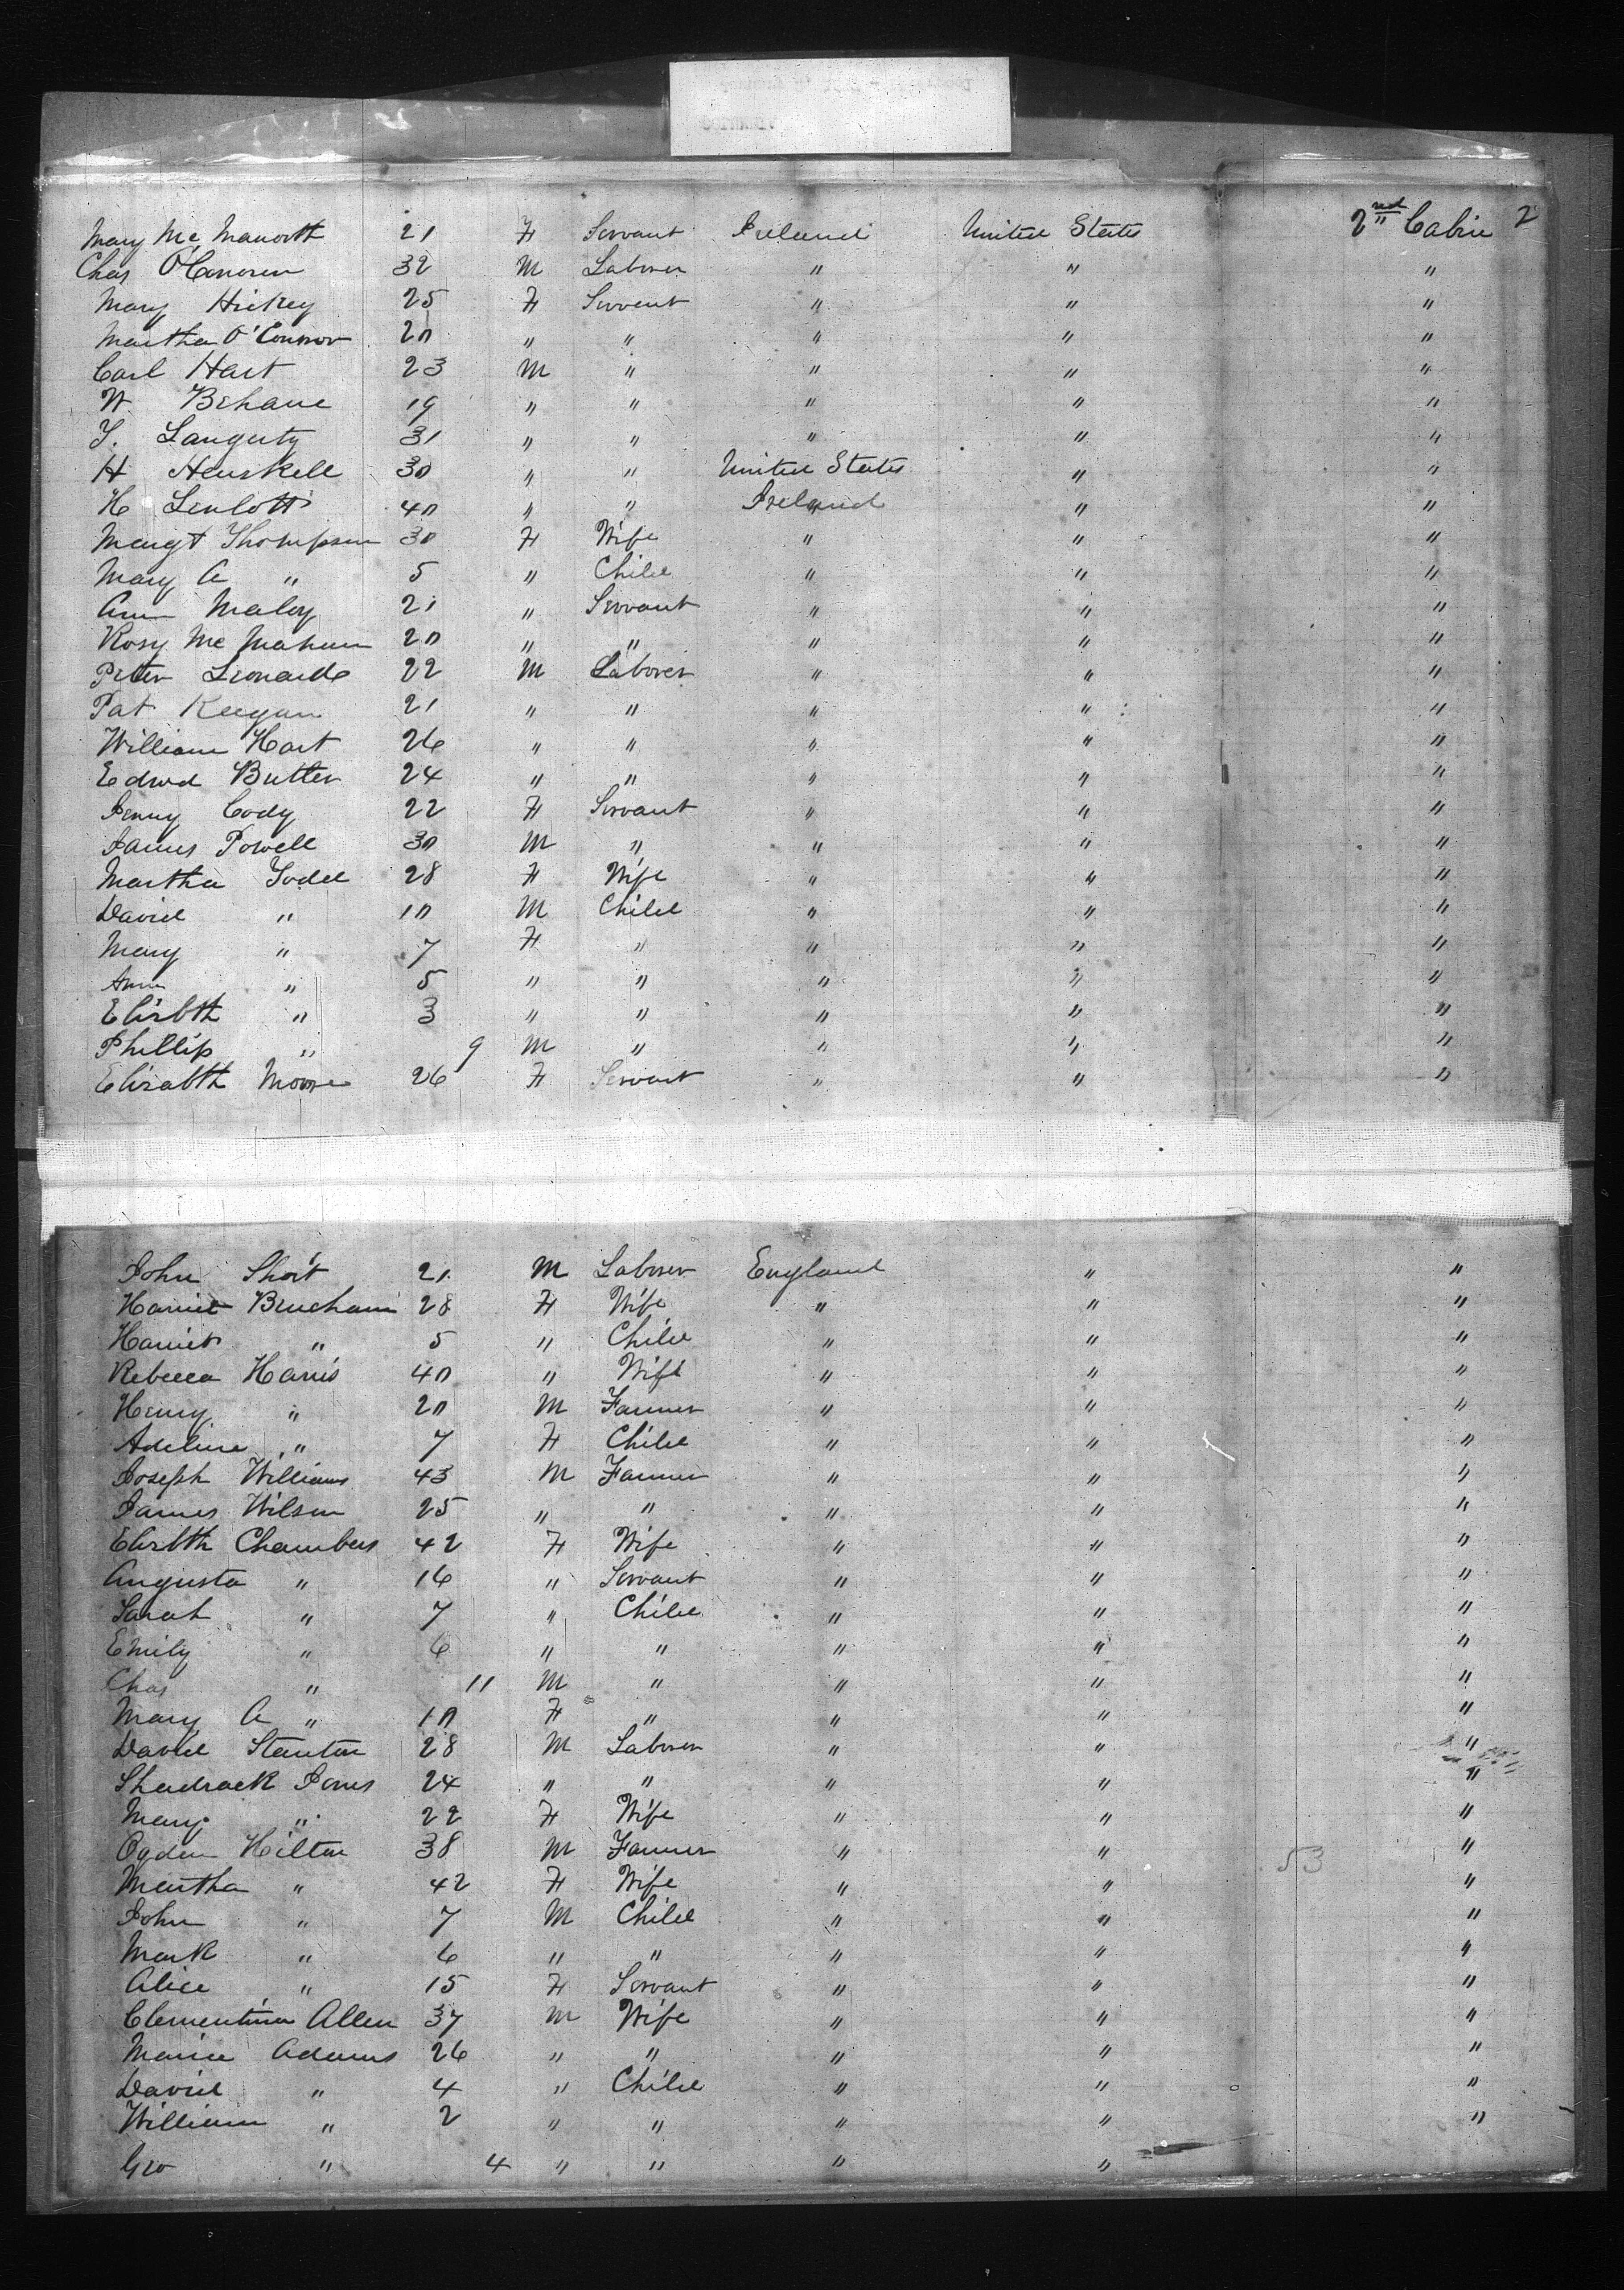 Mary Mc 21 F Servant Ireland United States 2nd Cabin 2
Chas 32 M Laborer " " "
Mary Hickey 25 F Servent " " "
Martha O'Connor 20 " " " " "
Carl Hart 23 M " " " "
W Behane 19 " " " " "
31 " " " " "
H 30 " " United States " "
H 40 " " Ireland " "
Margt Thompson 30 F Wife " " "
Mary A " 5 " Child " " "
Ann Maloy 21 " Servant " " "
Rosy Mc Mahum 20 " " " " "
Peter Leonarde 22 M Laborer " " "
Pat Keegan 21 " " " " "
William Hart 26 " " " " "
Edwd Butler 24 " " " " "
Jenny Cody 22 F Servant " " "
James Powell 30 M " " " "
Martha 28 F Wife " " "
David " 10 M Child " " "
Mary " 7 F " " " "
Ann " 5 " " " " "
Elizbth " 3 " " " " "
Phillip " 9 M " " " "
Elizabth Moore 26 F Servant " " "
John Short 21 M Laborer England " "
Harriet 28 F Wife " " "
Harriet " 5 " Child " " "
Rebecca Harris 40 " Wife " " "
Henry " 20 M Farmer " " "
Adeline " 7 F Child " " "
Joseph Williams 43 M Farmer " " "
James Wilson 25 " " " " "
Elizbth Chambers 42 F Wife " " "
Augusta " 16 " Servant " " "
Sarah " 7 " Child " " "
Emily " 6 " " " " "
Chas " 11 M " " " "
Mary A " 10 F " " " "
David Stanton 28 M Laborer " " "
Shadrack Jones 24 " " " " "
Mary " 22 F Wife " " "
Ogden Hilton 38 M Farmer " " 53 "
Martha " 42 F Wife " " "
John " 7 M Child " " "
Mark " 6 " " " " "
Alice " 15 F Servant " " "
Clementina Allen 37 M Wife " " "
Maria Adams 26 " " " " "
David " 4 " Child " " "
William " 2 " " " " "
Geo " 4 " " " "